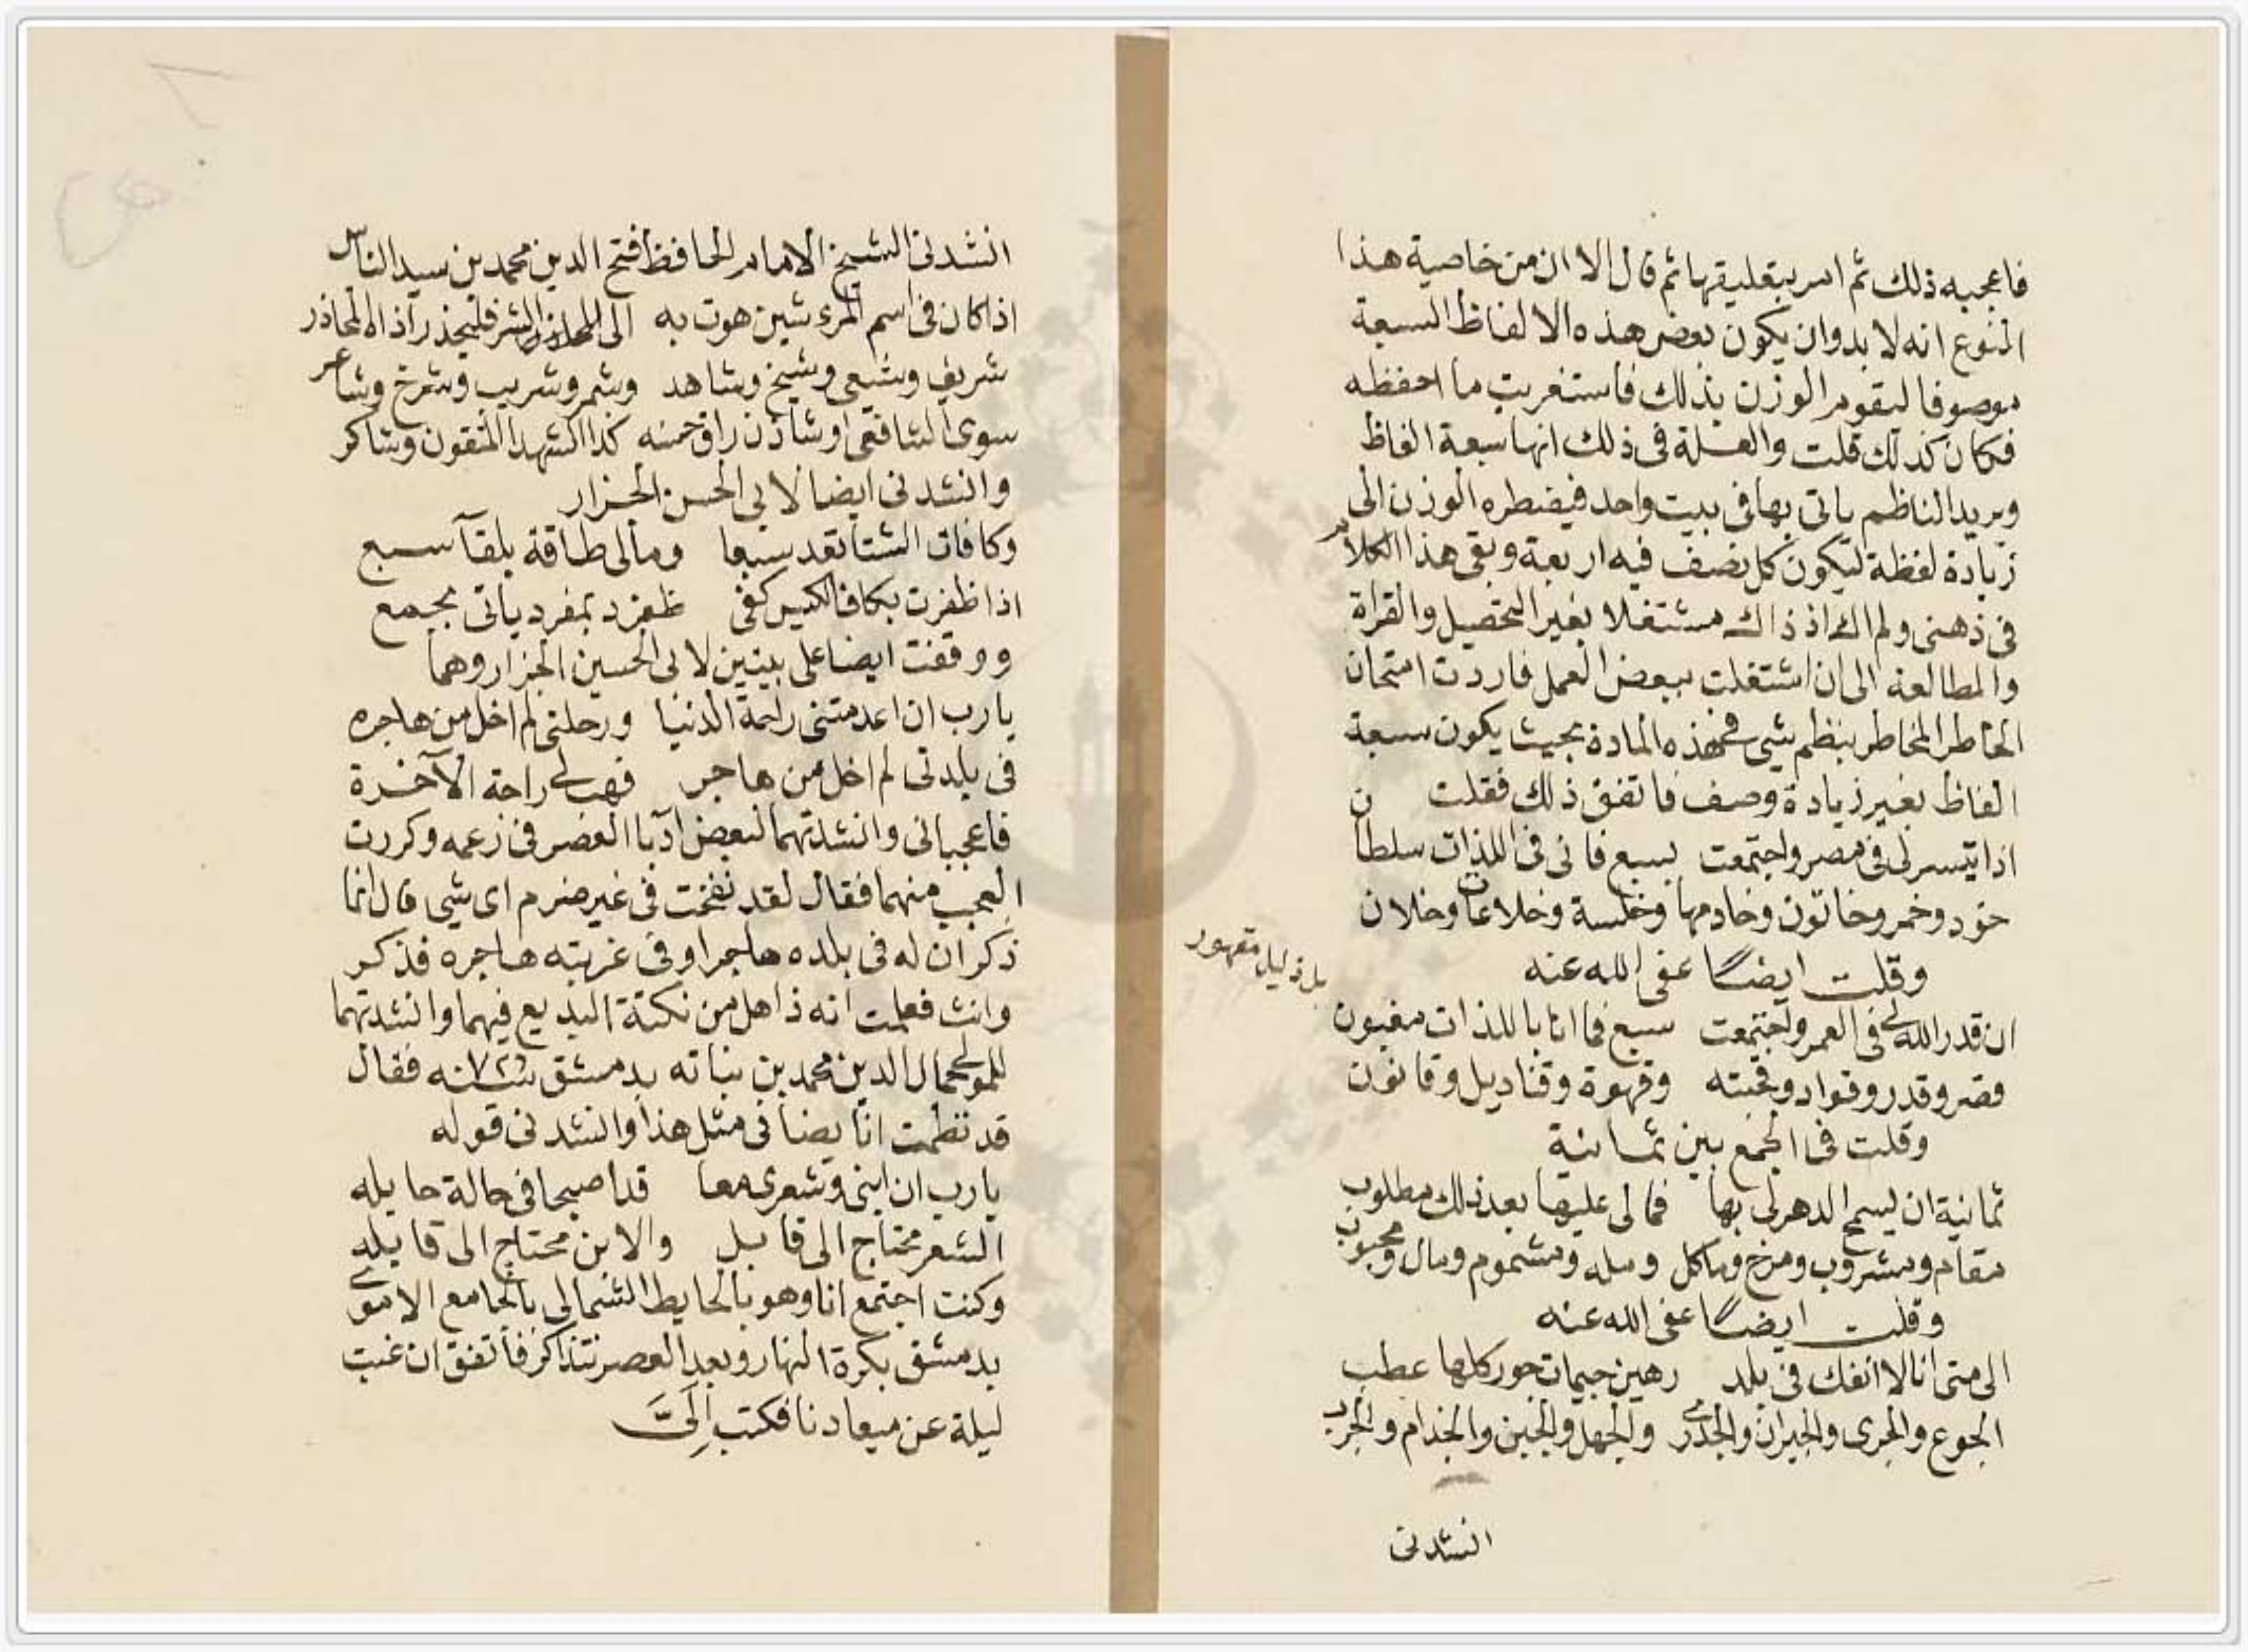 فاعجبه ذلك ثم امر بتعليقها ثم قال الا ان من خاصية هذا
النوع انه لا بد وان يكون بعض هذه الالفاظ السبعة
موصوفا ليقوم الوزن بذلك فاستغربت ما احفظه
فكان كذلك قلت والعلة فى ذلك انها سبعة الفاظ
ويريد الناظم ياتى بها فى بيت واحد فيضطره الوزن الى
زيادة لفظة ليكون كل نصف فيه اربعة وبقى هذا الكلام
فى ذهنى ولم اك اذ ذاك مشتغلا بغير التحصيل والقراة
والمطالعة الى ان اشتغلت ببعض العمل فاردت امتحان
الخاطر المخاطر بنظم شى فى هذه المادة بحيث يكون سبعة
الفاظ بغير زيادة وصف فاتفق ذلك فقلت
اذا تيسر لى فى مصر واجتمعت سبع فانى فى اللذات سلطان
خود وخمر وخاتون وخادمها وخلسة وخلاعات وخلان
وقلت ايضا عفى الله عنه
ان قدر الله لى فى العمر واجتمعت سبع فما انا باللذات مغبون
بل ذليل مقهور
قصر وقدر وقواد وقحبته وقهوة وقناديل وقانون
وقلت فى الجمع بين ثمانية
ثمانية ان يسمح الدهر لى بها فمالى عليها بعد ذلك مطلوب
مقام ومشروب ومزج وماكل ومله ومشموم ومال ومحبوب
وقلت ايضا عفى الله عنه
الى متى انا لا انفك فى بلد رهين جيمات جور كلها عطب
الجوع والجرى والجيران والجدرى والجهل والجبن والجذام والجرب
انشدنى
انشدنى الشيخ الامام الحافظ فتح الدين محمد بن سيد الناس
اذا كان فى اسم المرء شين هوت به الى الشر فليحذر اذاه المحاذر
شريف وشيعى وشيخ وشاهد وشمر وشريب وشرخ وشاعر
سوى الشافعى او شاذن راق حسنه كذا الشهدا المتقون وشاكر
وانشدنى ايضا لابى الحسن الجزار
وكافات الشتا تعد سبعا ومالى طاقة بلقآ سبع
اذا ظفرت بكاف الكيس كفى ظفرت بمفرد ياتى بجمع
ووقفت ايضا على بيتين لابى الحسين الجزار وهما
يا رب ان اعدمتنى راحة الدنيا ورحلتى لم اخل من هاجره
فى بلدتى لم اخل من هاجر فهب لى راحة الآخرة
فاعجبانى وانشدتهما لبعض ادبا العصر فى زعمه وكررت
العجب منهما فقال لقد نفخت فى غير ضرم اى شى قال انما
ذكر ان له فى بلده هاجرا وفى غربته هاجره فذكر
وانث فعلمت انه ذاهل من نكتة البديع فيهما وانشدتهما
للمولى جمال الدين محمد بن نباته بدمشق سنه فقال
قد نظمت انا ايضا فى مثل هذا وانشدنى قوله
يا رب ان ابنى وشعرى معا قد اصبحا فى حالة حايله
الشعر محتاج الى قابل والابن محتاج الى قابله
وكنت اجتمع انا وهو بالحايط الشمالى بالجامع الاموى
بدمشق بكرة النهار وبعد العصر نتذاكر فاتفق ان غبت
ليلة عن ميعادنا فكتب اِلَىَّ